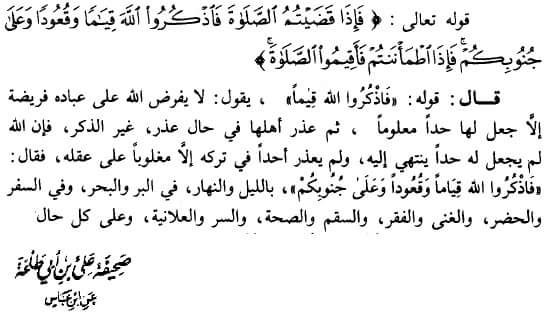 قوله تعالى : ﴿ فَإِذَا قَضَيْتُمُ الصَّلَوٰةَ فَاذْكُرُوا۟ اللَّهَ قِيَـٰمًا وَقُعُودًا وَعَلَىٰ
جُنُوبِكُمْ ۚ فَإِذَا ٱطْمَأْنَنتُمْ فَأَقِيمُوا۟ ٱلصَّلَوٰةَ ۚ ﴾
قـــال : قوله: «فَاذْكُرُوا الله قِيٰماً» ، يقول: لا يفرض الله على عباده فريضة
إلَّا جعل لها حداً معلوماً ، ثم عذر أهلها في حال عذر، غير الذكر، فإن الله
لم يجعل له حداً ينتهي إليه، ولم يعذر أحداً في تركه إلَّا مغلوباً على عقله، فقال:
«فَاذْكُرُوا الله قِيَاماً وَقُعُوداً وَعَلَى جُنُوبِكُمْ»، بالليل والنهار، في البر والبحر، وفي السفر
والحضر، والغنى والفقر، والسقم والصحة، والسر والعلانية، وعلى كل حال
صَحِيفَة عَلِيّ بْنِ أَبِي طَلْحَة
عَنِ ابْنِ عَبَّاس